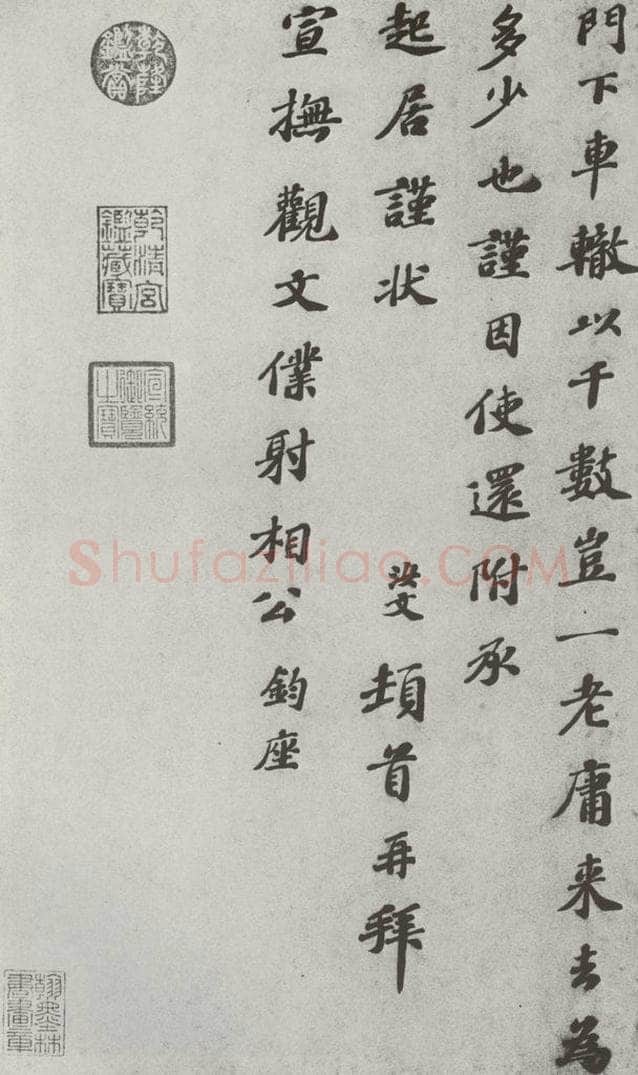 門下車轍以千數豈一老庸来去為
多少也謹因使還附承
起居謹状
頓首再拜
宣撫觀文僕射相公鈞座
乾隆鑑賞
乾清宮鑑藏寶
宣統御覽之寶
翰墨林書畫章
Shufaziliao.COM